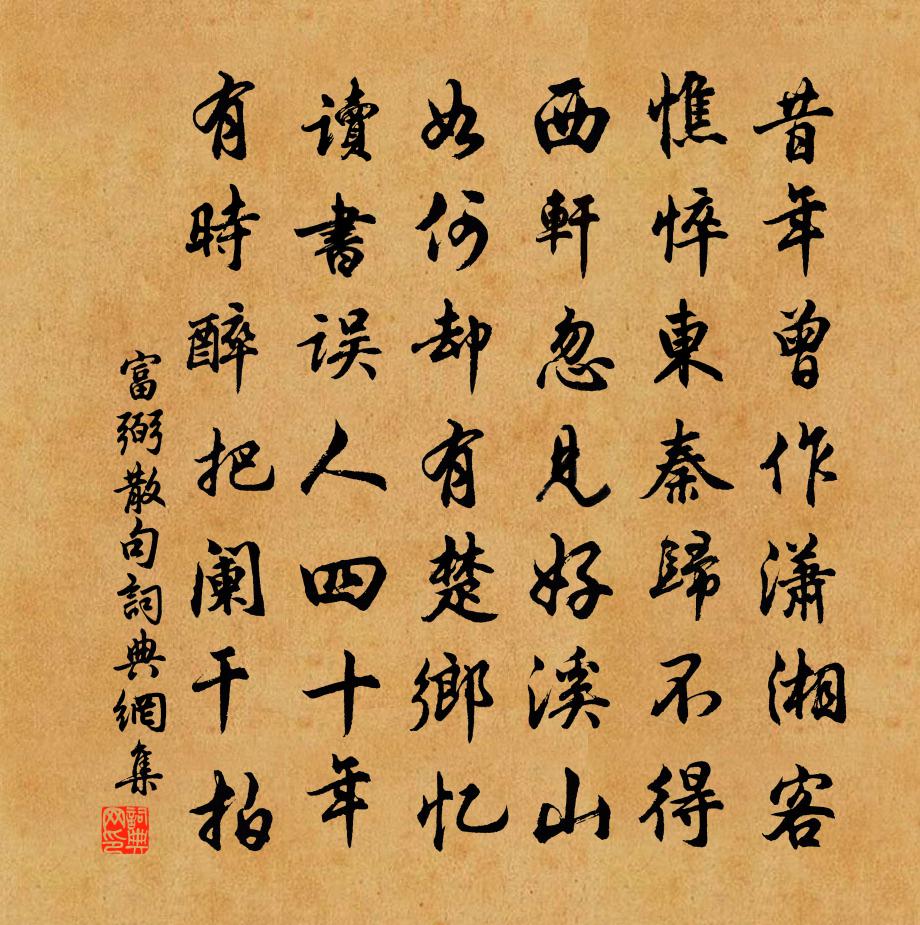 昔年曾作潇湘客
憔悴東秦歸不得
西軒忽見好溪山
如何却有楚鄉忆
讀書误人四十年
有時醉把阑干拍
富弼散句詞典網集
詞典网印